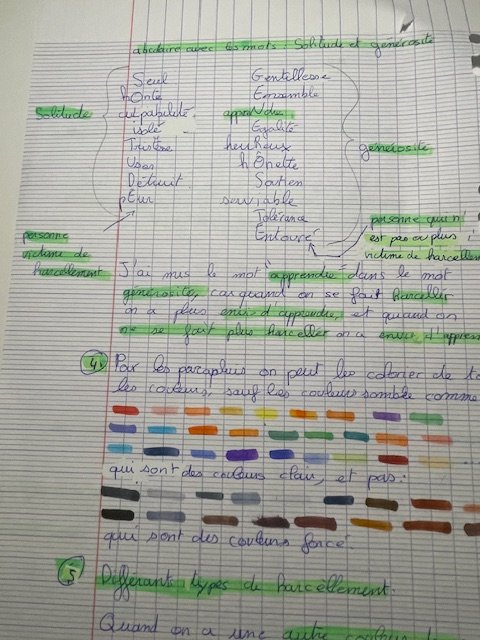 abcdaire avec les mots : Solitude et générosité
Seul Gentillesse
hOnte Ensemble
Solitude cuLpabilité appreNdre
isolé Egalité
Tristesse heuReux générosité
User hOnette
Détruit Soutien
pEur servIable
Tolérance
Entouré
personne victime de harcellement
personne qui n'
est pas ou plus
victime de harcellem
J'ai mis le mot "apprendre" dans le mot
générosité, car quand on se fait harceller
on a plus envie d'apprendre, et quand on
ne se fait plus harceller on a envie d'appren
4) Pour les parapluis on peut les colorier de to
les couleurs, sauf les couleurs sombre comme
qui sont des couleurs clair, et pas :
qui sont des couleurs foncé.
5) Différants types de harcèllement.
Quand on a une autre couleur de